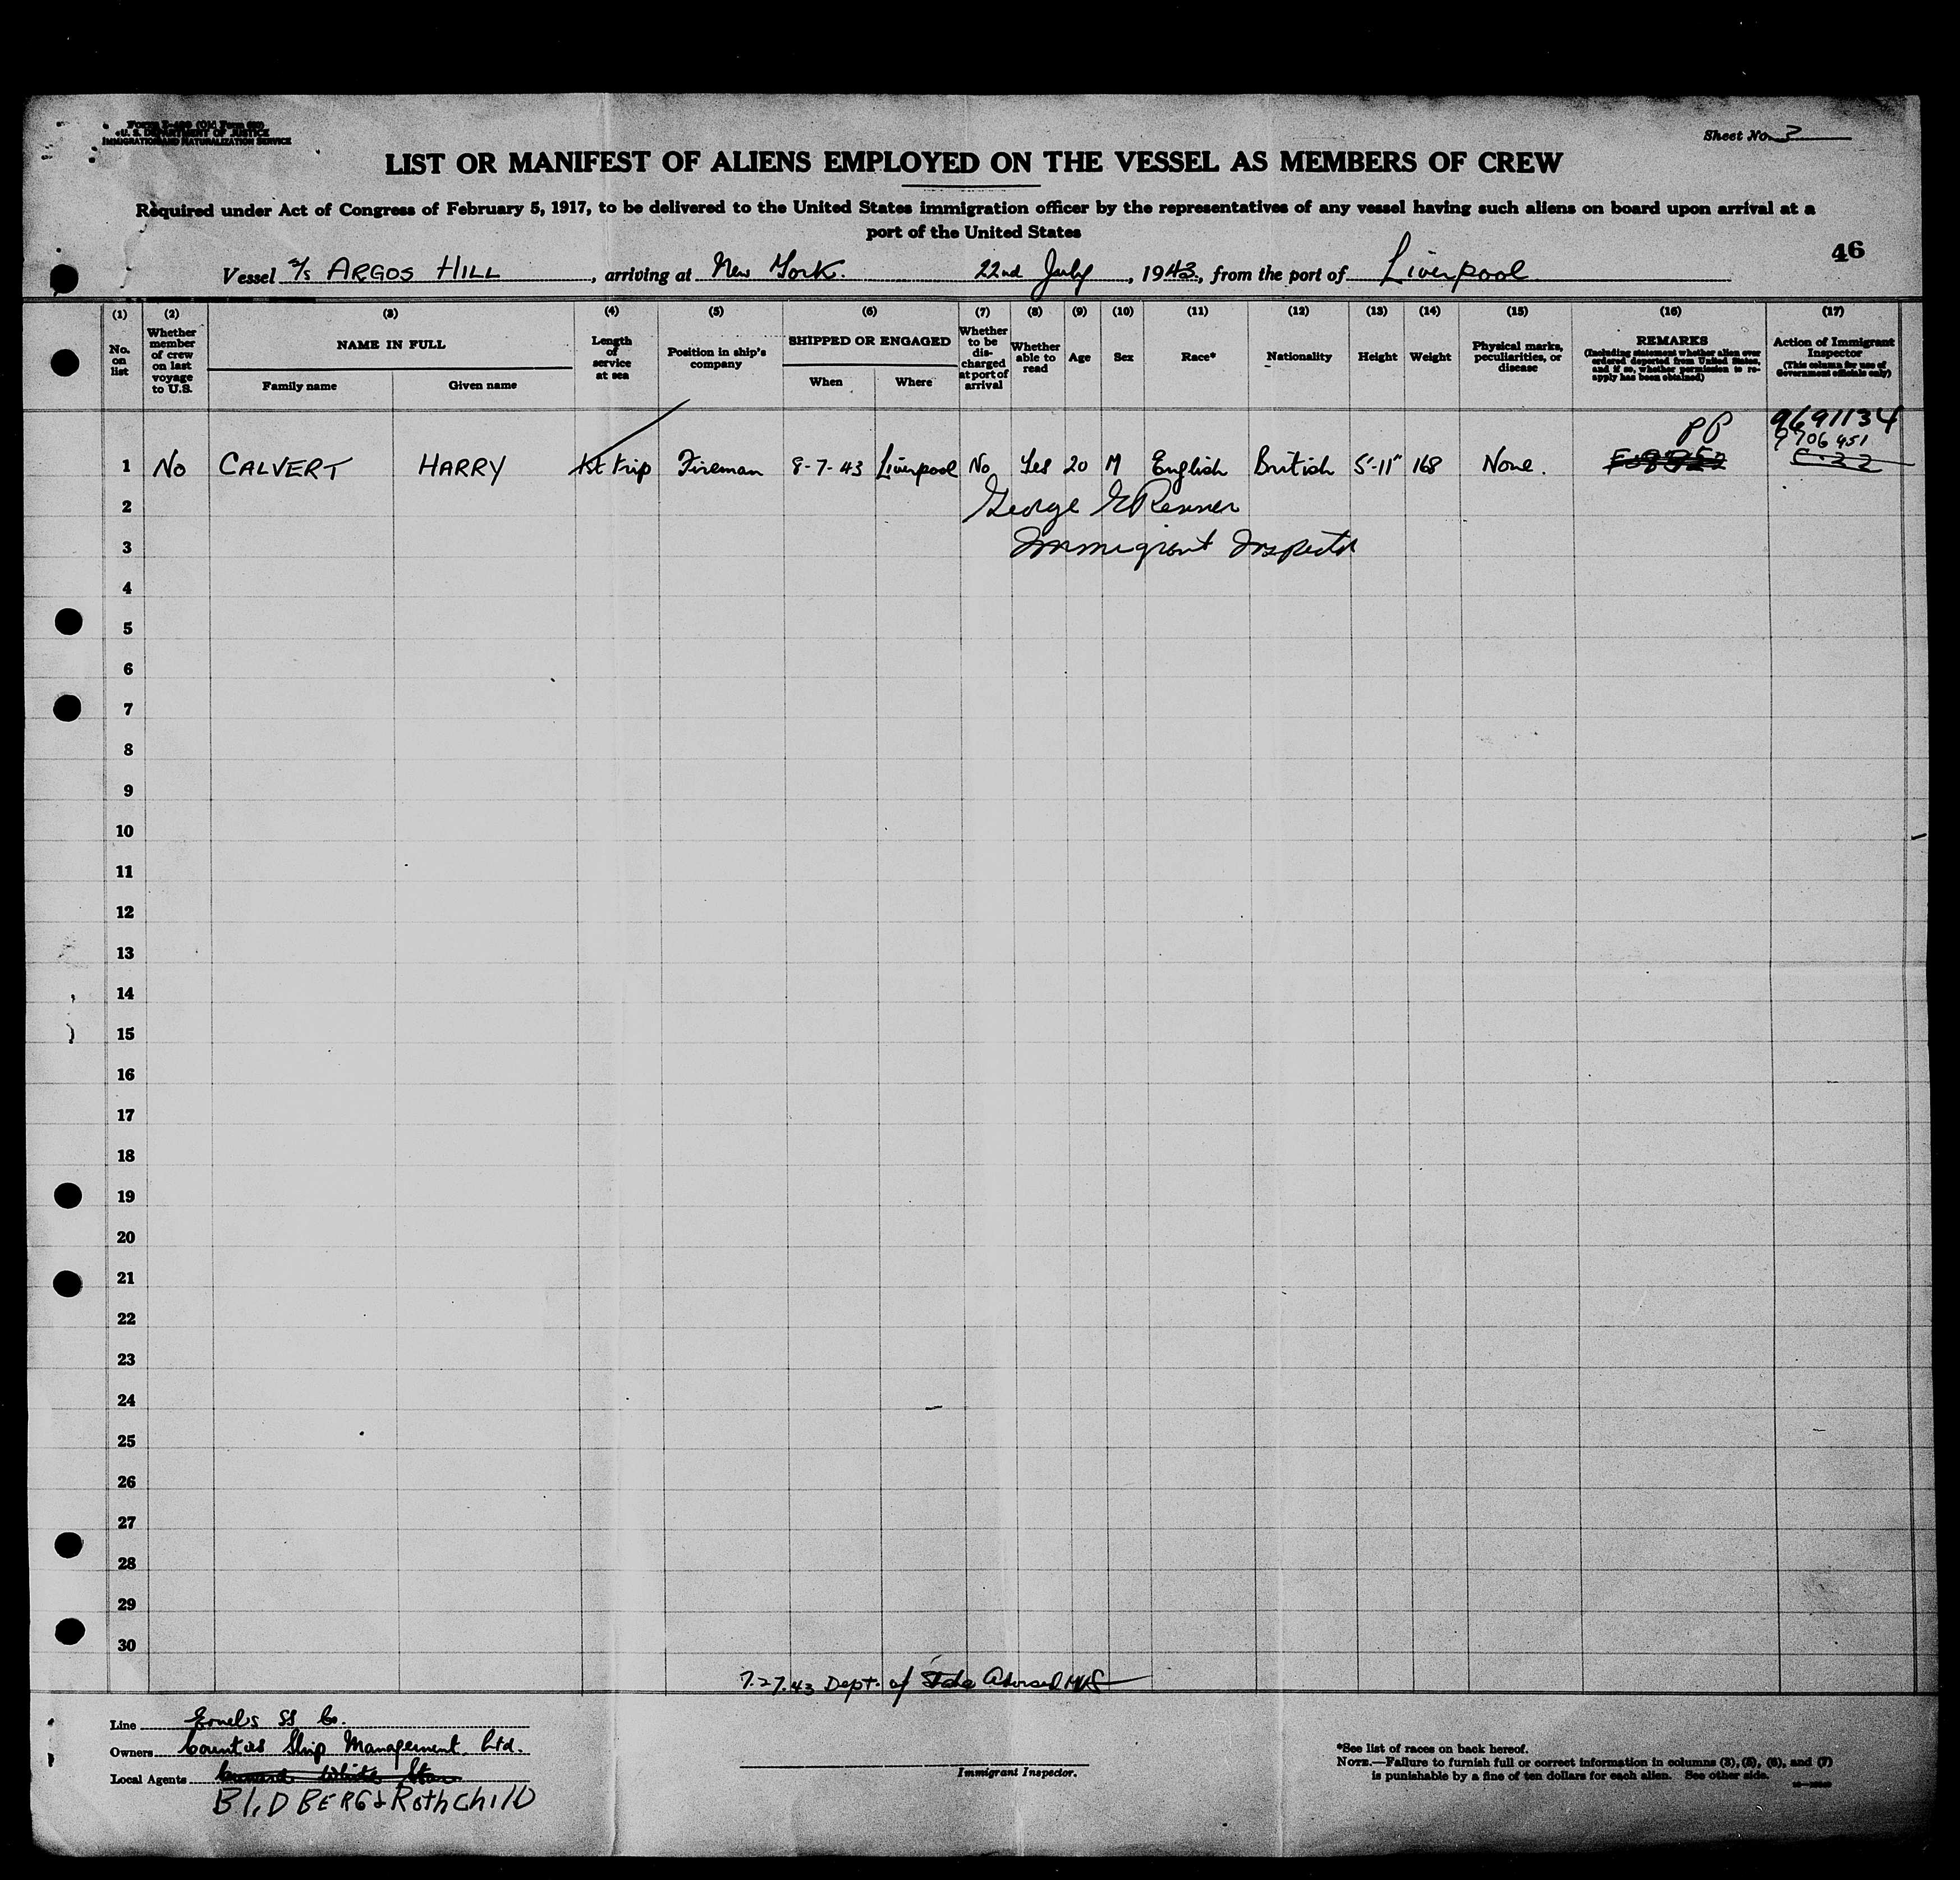 U. S. DEPARTMENT OF JUSTICE
IMMIGRATION AND NATURALIZATION SERVICE
Sheet No. 3
LIST OR MANIFEST OF ALIENS EMPLOYED ON THE VESSEL AS MEMBERS OF CREW
Required under Act of Congress of February 5, 1917, to be delivered to the United States immigration officer by the representatives of any vessel having such aliens on board upon arrival at a
port of the United States
46
Vessel s/s ARGOS HILL, arriving at New York. 22nd July, 1943, from the port of Liverpool
(1) No. on list
(2) Whether member of crew on last voyage to U.S.
(3) NAME IN FULL Family name Given name
(4) Length of service at sea
(5) Position in ship's company
(6) SHIPPED OR ENGAGED When Where
(7) Whether to be discharged at port of arrival
(8) Whether able to read
(9) Age
(10) Sex
(11) Race*
(12) Nationality
(13) Height
(14) Weight
(15) Physical marks, peculiarities, or disease
(16) REMARKS (Including statement whether alien ever ordered deported from United States, and if so, whether permission to reapply has been obtained)
(17) Action of Immigrant Inspector (This column for use of Government officials only)
PP 9691134
9706451
1 No CALVERT HARRY 1st trip Fireman 8-7-43 Liverpool No Yes 20 M English British 5'-11" 168 None.
2 George E Renner
3 Immigrant Inspector
4
5
6
7
8
9
10
11
12
13
14
15
16
17
18
19
20
21
22
23
24
25
26
27
28
29
30
7.27.43 Dept. of State Advised
Line SS Co.
Owners Counties Ship Management Ltd.
Local Agents Cunard White Star
BLIDBERG & RothchilD
Immigrant Inspector.
*See list of races on back hereof.
NOTE.—Failure to furnish full or correct information in columns (3), (5), (6), and (7)
is punishable by a fine of ten dollars for each alien. See other side.